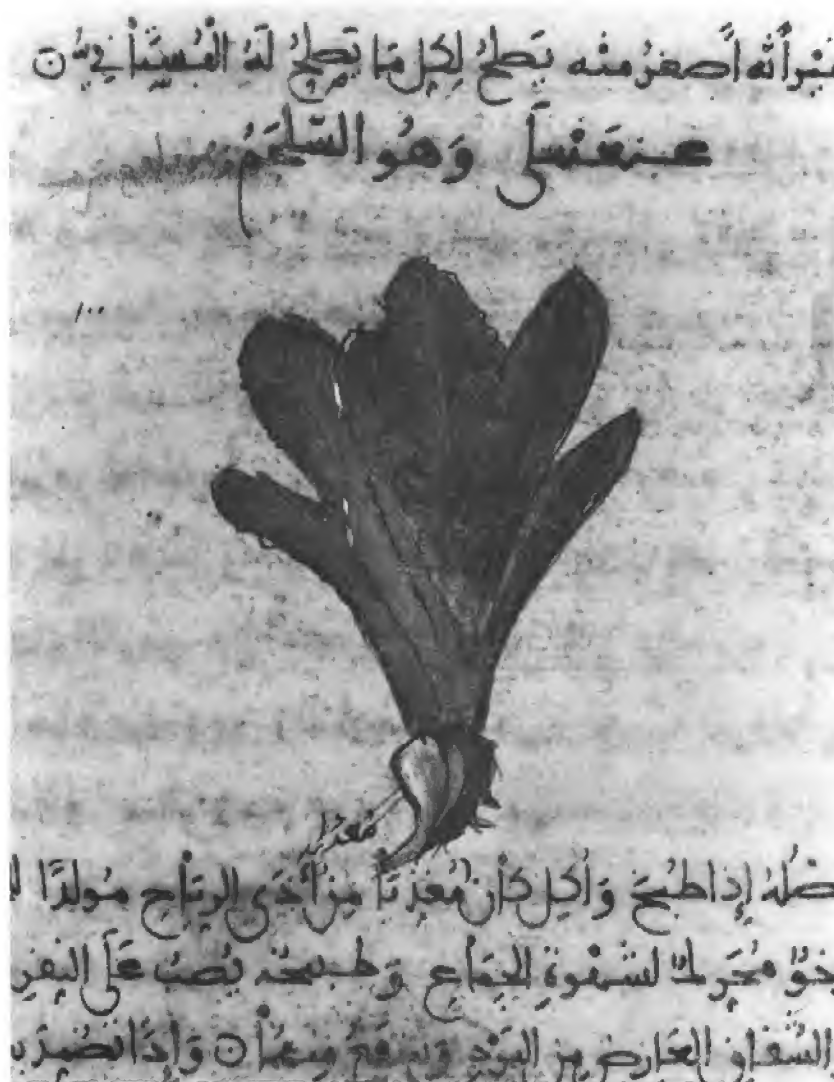 غير أنه أصغر منه يصلح لكل ما يصلح له البستاني
وهو السلجم
صله إذا طبخ وأكل كان مغذيا من أذى الرياح مولدا ل
خو محرك لشهوة الجماع وطبيخه يصب على النقر
الشقاق العارض من البرد وينفع منهما وإذا تضمد ب